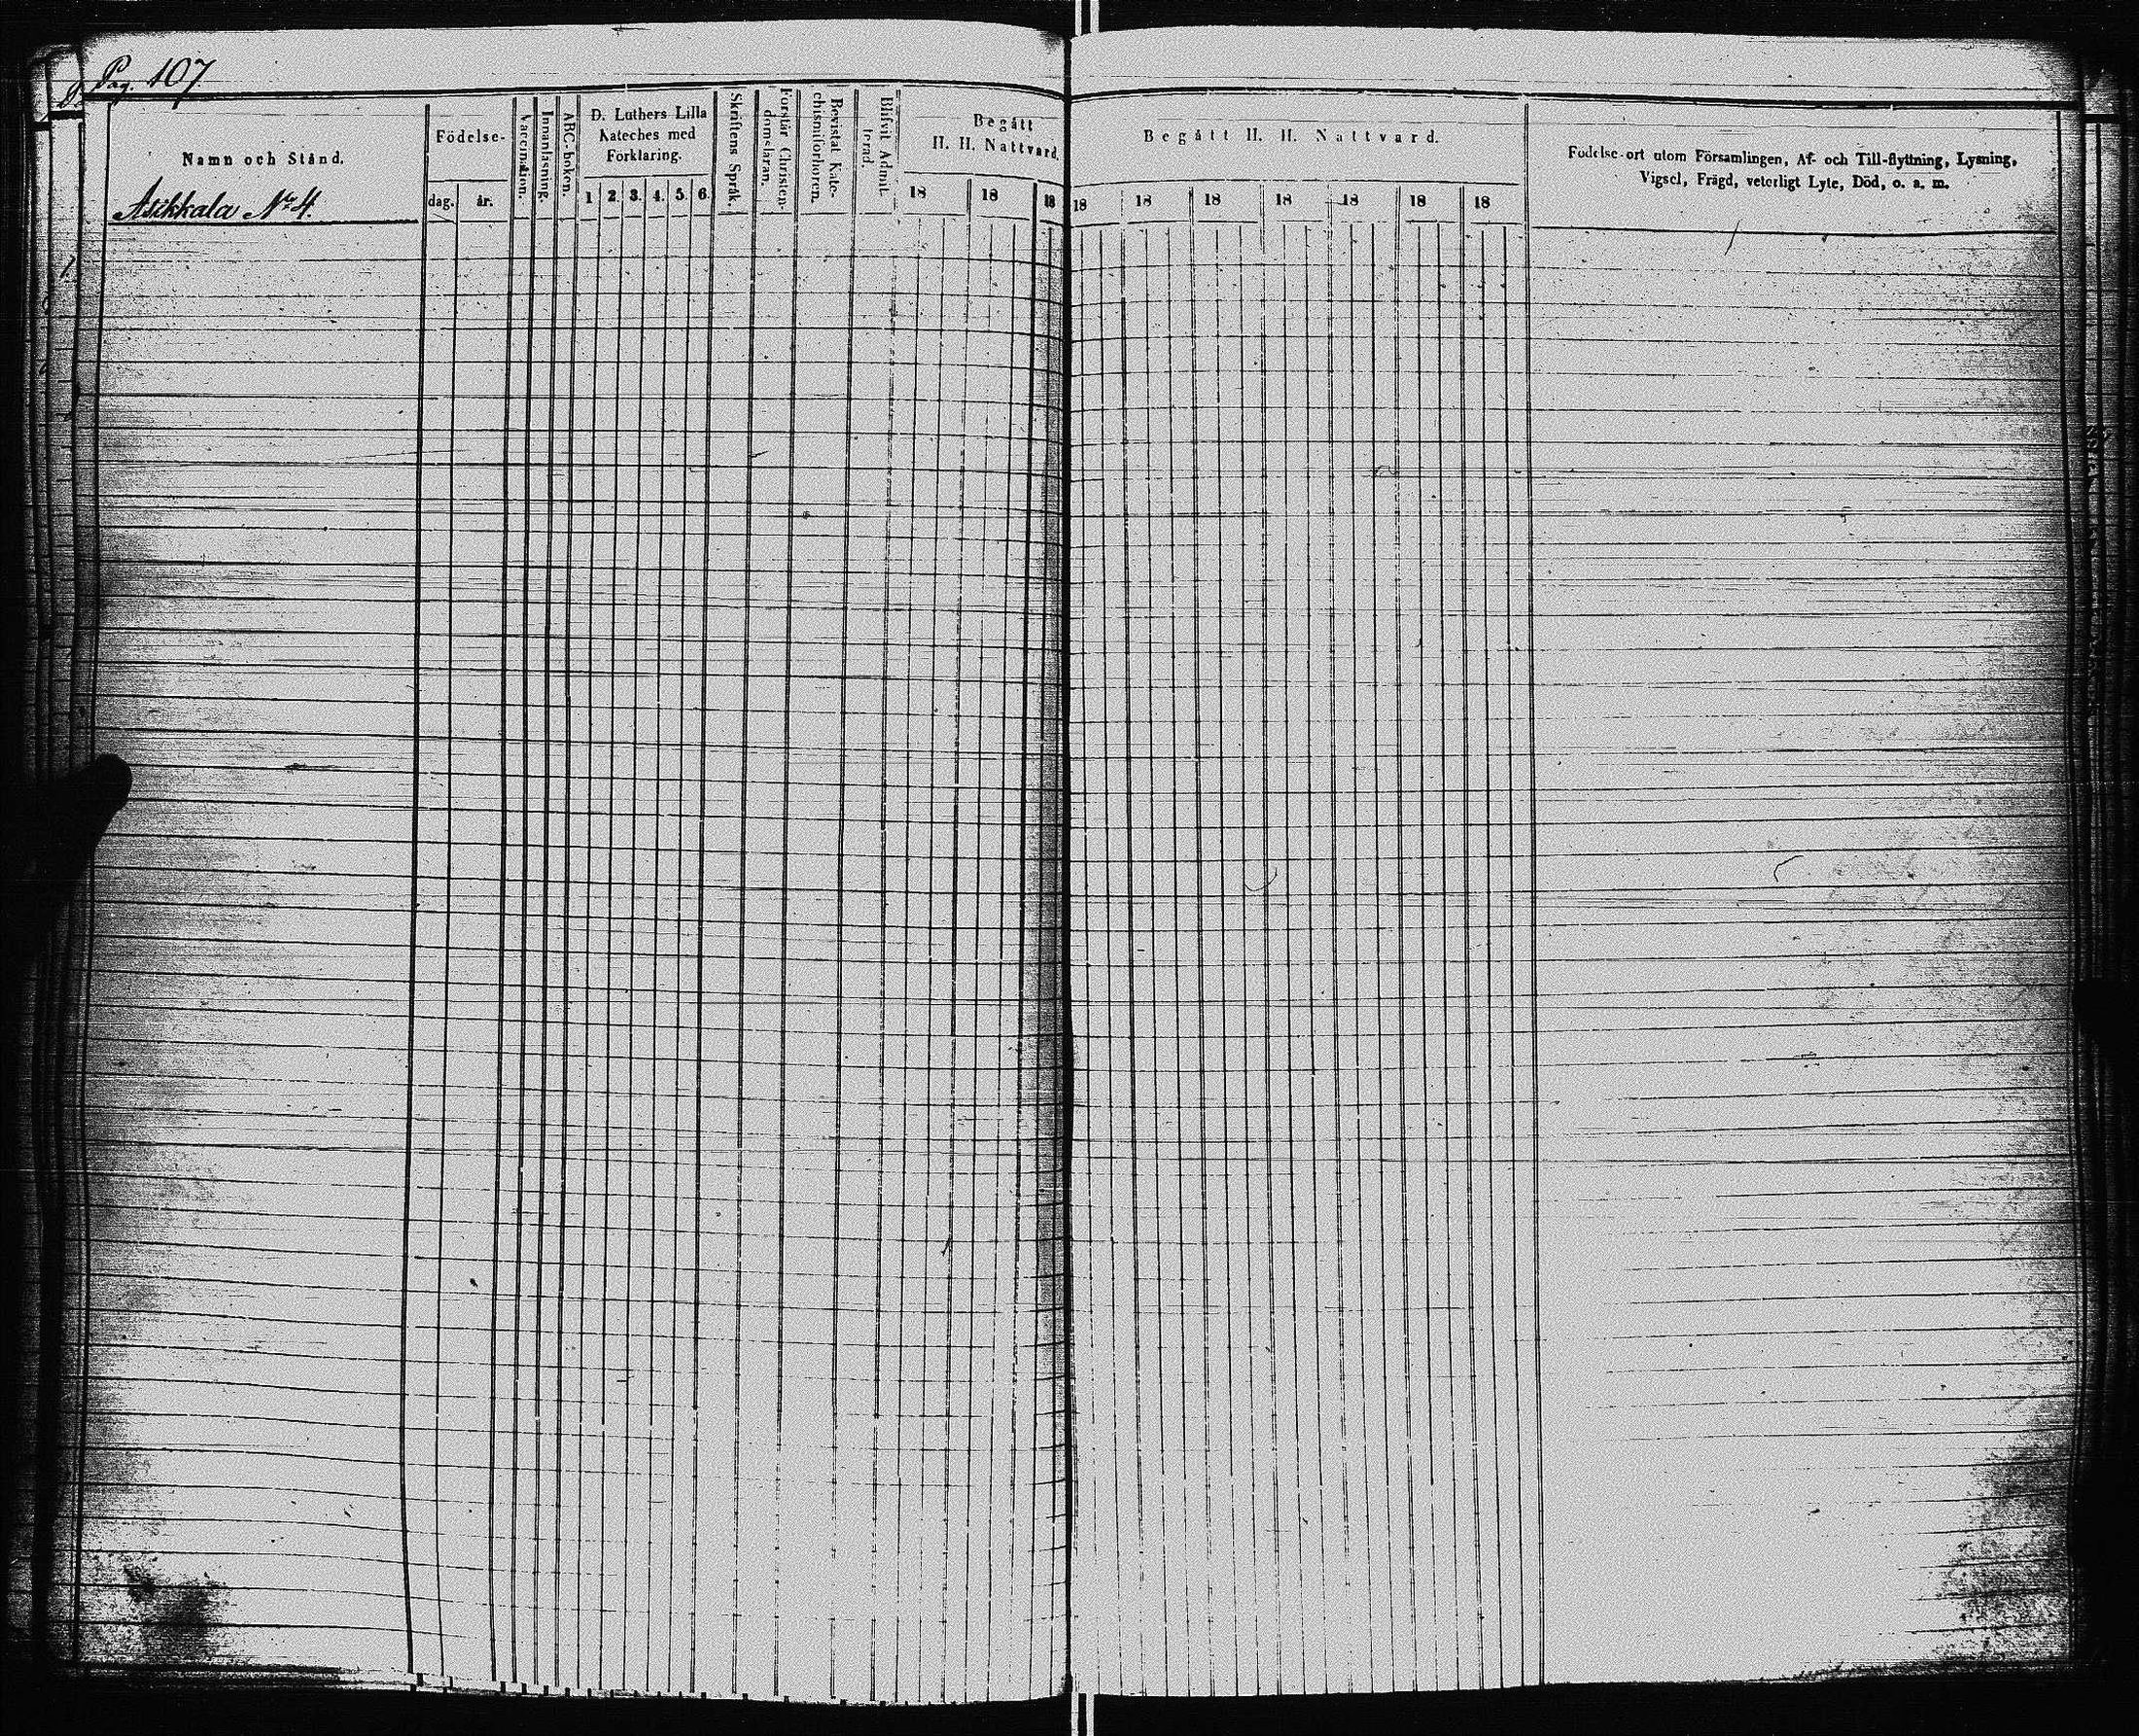 Pag. 107.
Namn och Stånd.
Asikkala No 4.
Födelse-
dag. år.
Vaccination.
Innanläsning.
ABC-boken.
D. Luthers Lilla
Kateches med
Forklaring.
1 2. 3. 4. 5. 6.
Skriftens Språk.
Förstår Christen-
domsläran.
Bevistat Kate-
chismiförhören.
Blifvit Admit-
terad.
Begått
H. H. Nattvard.
18 18 18
Begått H. H. Nattvard.
18 18 18 18 18 18 18
Födelse-ort utom Församlingen, Af- och Till-flyttning, Lysning,
Vigsel, Frägd, veterligt Lyte, Död, o. s. m.